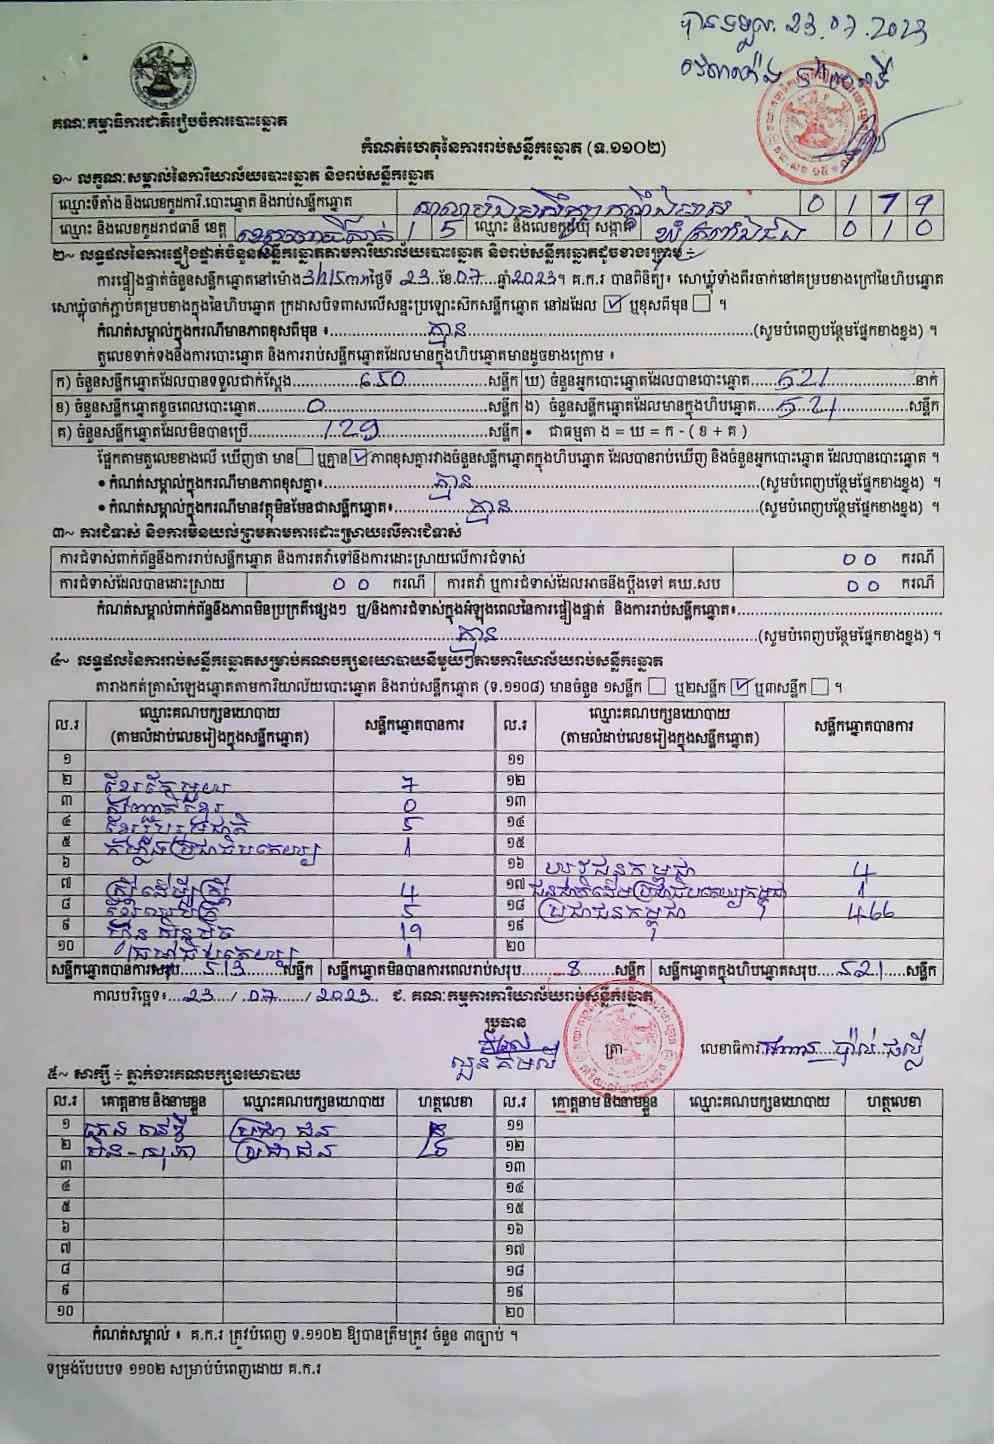 បានទទួល 23.07.2023
គណៈកម្មាធិការជាតិរៀបចំការបោះឆ្នោត
កំណត់ហេតុនៃការរាប់សន្លឹកឆ្នោត (ទ.១១០២)
១~ លក្ខណៈសម្គាល់នៃការិយាល័យបោះឆ្នោត និងរាប់សន្លឹកឆ្នោត
ឈ្មោះទីតាំង និងលេខកូដការិ.បោះឆ្នោត និងរាប់សន្លឹកឆ្នោត 0 1 7 9
ឈ្មោះ និងលេខកូដរាជធានី ខេត្ត ខេត្តពោធិ៍សាត់ 1 5 ឈ្មោះ និងលេខកូដឃុំ សង្កាត់ 0 1 0
២~ លទ្ធផលនៃការផ្ទៀងផ្ទាត់ចំនួនសន្លឹកឆ្នោតតាមការិយាល័យបោះឆ្នោត និងរាប់សន្លឹកឆ្នោតដូចខាងក្រោម ÷
ការផ្ទៀងផ្ទាត់ចំនួនសន្លឹកឆ្នោតនៅម៉ោង 3h15 ថ្ងៃទី 23 ខែ 07 ឆ្នាំ 2023។ គ.ក.រ បានពិនិត្យ៖ សោឃ្លុំទាំងពីរចាក់នៅគម្របខាងក្រៅនៃហិបឆ្នោត
សោឃ្លុំចាក់ភ្ជាប់គម្របខាងក្នុងនៃហិបឆ្នោត ក្រដាសបិទពាសលើសន្ទះប្រឡោះស៊កសន្លឹកឆ្នោត នៅដដែល ☑ ឬខុសពីមុន ☐ ។
កំណត់សម្គាល់ក្នុងករណីមានភាពខុសពីមុន ៖ គ្មាន (សូមបំពេញបន្ថែមផ្នែកខាងខ្នង) ។
តួលេខទាក់ទងនឹងការបោះឆ្នោត និងការរាប់សន្លឹកឆ្នោតដែលមានក្នុងហិបឆ្នោតមានដូចខាងក្រោម ៖
ក) ចំនួនសន្លឹកឆ្នោតដែលបានទទួលជាក់ស្តែង 650 សន្លឹក ឃ) ចំនួនអ្នកបោះឆ្នោតដែលបានបោះឆ្នោត 521 នាក់
ខ) ចំនួនសន្លឹកឆ្នោតខូចពេលបោះឆ្នោត 0 សន្លឹក ង) ចំនួនសន្លឹកឆ្នោតដែលមានក្នុងហិបឆ្នោត 521 សន្លឹក
គ) ចំនួនសន្លឹកឆ្នោតដែលមិនបានប្រើ 129 សន្លឹក • ជាធម្មតា ង = ឃ = ក - ( ខ + គ )
ផ្អែកតាមតួលេខខាងលើ ឃើញថា មាន ☐ ឬគ្មាន ☑ ភាពខុសគ្នារវាងចំនួនសន្លឹកឆ្នោតក្នុងហិបឆ្នោត ដែលបានរាប់ឃើញ និងចំនួនអ្នកបោះឆ្នោត ដែលបានបោះឆ្នោត ។
• កំណត់សម្គាល់ក្នុងករណីមានភាពខុសគ្នា៖ គ្មាន (សូមបំពេញបន្ថែមផ្នែកខាងខ្នង) ។
• កំណត់សម្គាល់ក្នុងករណីមានវត្ថុមិនមែនជាសន្លឹកឆ្នោត៖ គ្មាន (សូមបំពេញបន្ថែមផ្នែកខាងខ្នង) ។
៣~ ការជំទាស់ និងការមិនយល់ព្រមតាមការដោះស្រាយលើការជំទាស់
ការជំទាស់ពាក់ព័ន្ធនឹងការរាប់សន្លឹកឆ្នោត និងការតវ៉ាទៅនឹងការដោះស្រាយលើការជំទាស់ 00 ករណី
ការជំទាស់ដែលបានដោះស្រាយ 00 ករណី ការតវ៉ា ឬការជំទាស់ដែលអាចនឹងប្តឹងទៅ គឃ.សប 00 ករណី
កំណត់សម្គាល់ពាក់ព័ន្ធនឹងភាពមិនប្រក្រតីផ្សេងៗ ឬ/និងការជំទាស់ក្នុងអំឡុងពេលនៃការផ្ទៀងផ្ទាត់ និងការរាប់សន្លឹកឆ្នោត៖
គ្មាន (សូមបំពេញបន្ថែមផ្នែកខាងខ្នង) ។
៤~ លទ្ធផលនៃការរាប់សន្លឹកឆ្នោតសម្រាប់គណបក្សនយោបាយនីមួយៗតាមការិយាល័យរាប់សន្លឹកឆ្នោត
តារាងកត់ត្រាសំឡេងឆ្នោតតាមការិយាល័យបោះឆ្នោត និងរាប់សន្លឹកឆ្នោត (ទ.១១០៨) មានចំនួន ១សន្លឹក ☐ ឬ២សន្លឹក ☑ ឬ៣សន្លឹក ☐ ។
ល.រ ឈ្មោះគណបក្សនយោបាយ (តាមលំដាប់លេខរៀងក្នុងសន្លឹកឆ្នោត) សន្លឹកឆ្នោតបានការ ល.រ ឈ្មោះគណបក្សនយោបាយ (តាមលំដាប់លេខរៀងក្នុងសន្លឹកឆ្នោត) សន្លឹកឆ្នោតបានការ
១ ១១
២ ខ្មែរតែមួយ 7 ១២
៣ សញ្ជាតិខ្មែរ 0 ១៣
៤ ខ្មែររួបរួមជាតិ 5 ១៤
៥ សំបុកឃ្មុំប្រជាធិបតេយ្យ 1 ១៥
៦ ១៦ យុវជនកម្ពុជា 4
៧ ស្ត្រីដើម្បីស្ត្រី 4 ១៧ ជនជាតិដើមប្រជាធិបតេយ្យកម្ពុជា 1
៨ ខ្មែរឈប់ក្រ 5 ១៨ ប្រជាជនកម្ពុជា 466
៩ ហ៊្វុនស៊ិនប៉ិច 19 ១៩
១០ ប្រជាធិបតេយ្យ 1 ២០
សន្លឹកឆ្នោតបានការសរុប 513 សន្លឹក សន្លឹកឆ្នោតមិនបានការពេលរាប់សរុប 8 សន្លឹក សន្លឹកឆ្នោតក្នុងហិបឆ្នោតសរុប 521 សន្លឹក
កាលបរិច្ឆេទ៖ 23 / 07 / 2023 ជ. គណៈកម្មការការិយាល័យរាប់សន្លឹកឆ្នោត
ប្រធាន
ត្រា
លេខាធិការ
៥~ សាក្សី ÷ ភ្នាក់ងារគណបក្សនយោបាយ
ល.រ គោត្តនាម និងនាមខ្លួន ឈ្មោះគណបក្សនយោបាយ ហត្ថលេខា ល.រ គោត្តនាម និងនាមខ្លួន ឈ្មោះគណបក្សនយោបាយ ហត្ថលេខា
១ ប្រជាជន ១១
២ ប្រជាជន ១២
៣ ១៣
៤ ១៤
៥ ១៥
៦ ១៦
៧ ១៧
៨ ១៨
៩ ១៩
១០ ២០
កំណត់សម្គាល់ ៖ គ.ក.រ ត្រូវបំពេញ ទ.១១០២ ឱ្យបានត្រឹមត្រូវ ចំនួន ៣ច្បាប់ ។
ទម្រង់បែបបទ ១១០២ សម្រាប់បំពេញដោយ គ.ក.រ